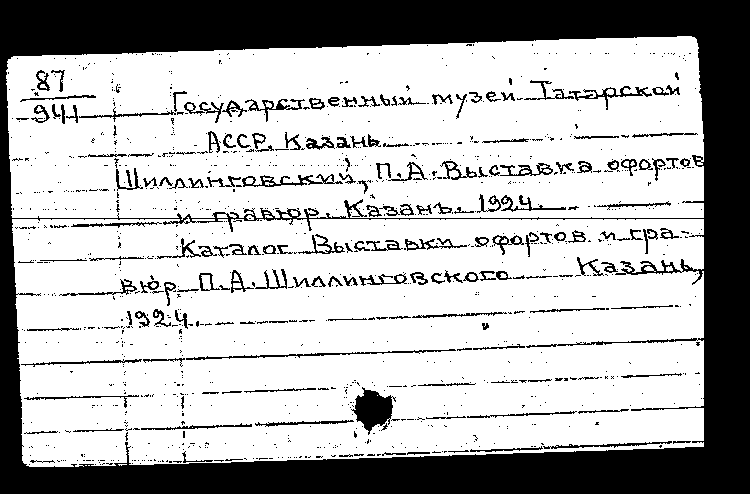 87
941
Государственный музей Татарской
АССР. Казань.
Шиллинговский, П.А. Выставка офортов
и гравюр. Казань. 1924.
Каталог Выставки офортов и гра-
вюр П.А. Шиллинговского Казань,
1924.